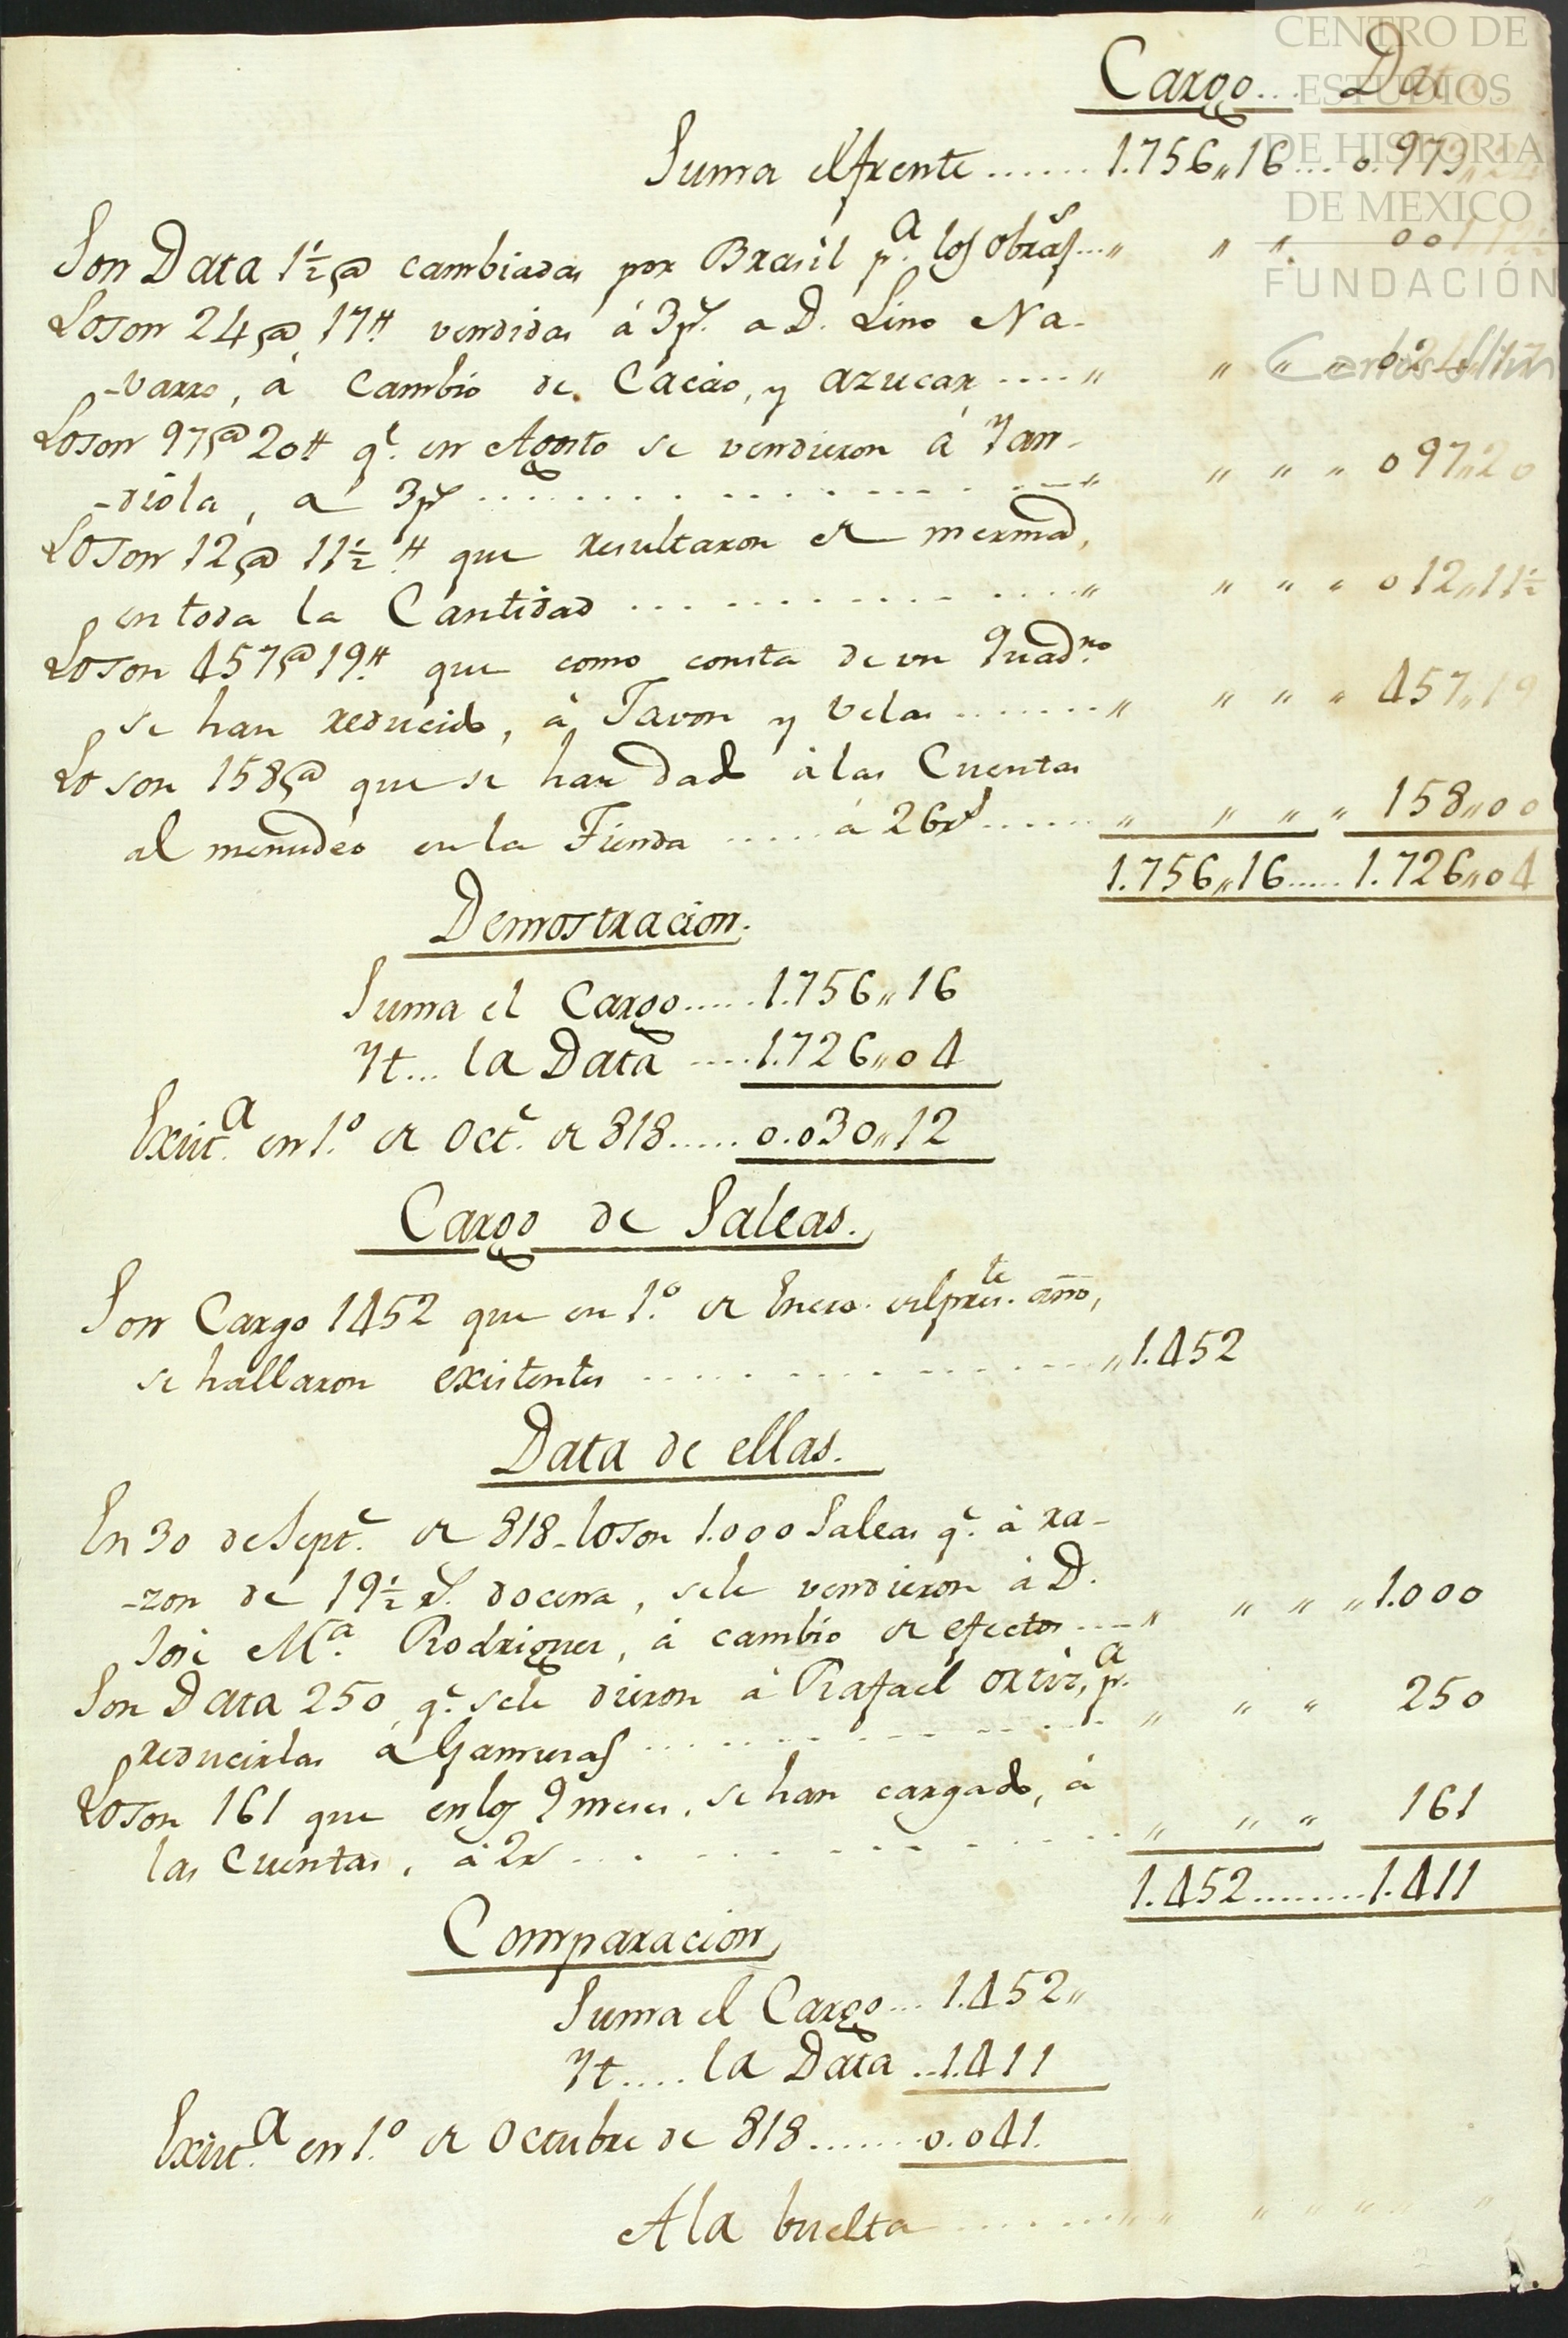 CENTRO DE
ESTUDIOS
DE HISTORIA
DE MEXICO
FUNDACIÓN
Cargo... Dat
Suma el frente ...... 1.756,,16 .... 0.979,,
Son Data 1½@ cambiadas por Brasil pª. los obras ... ,, ,, ,, 001,,12½
Lo son 24@ 17tt vendidas á 3ps. a D. Lino Na-
-varro, á cambio de Cacao, y azucar .... ,, ,, ,, ,, 024,,17
Lo son 97@ 20tt qe. en Agosto se vendieron á Yan-
-diola, a 3ps ........ ,, ,, ,, ,, 097,,20
Lo son 12@ 11½tt que resultaron de merma,
en toda la Cantidad ........ ,, ,, ,, ,, 012,,11½
Lo son 457@ 19tt que como consta de un Quadno.
se han reducido, á Javon y Velas ....... ,, ,, ,, ,, 457,,19
Lo son 158@ que se han dado á las Cuentas
al menudeo en la Tienda ..... á 26rs ...... ,, ,, ,, ,, 158,,00
1.756,,16 ..... 1.726,,04
Demostracion.
Suma el Cargo ..... 1.756,,16
Yt... la Data ..... 1.726,,04
Exista. en 1.º de Octe. de 818 ..... 0.030,,12
Cargo de Saleas.
Son Cargo 1452 que en 1.º de Enero del preste. año,
se hallaron existentes ........ ,, 1.452
Data de ellas.
En 30 de Septe. de 818 - lo son 1.000 Saleas qe. á ra-
-zon de 19½ rs. docena, se le vendieron á D.
José Mª. Rodriguez, á cambio de efectos .... ,, ,, ,, ,, 1.000
Son Data 250, qe. se le dieron á Rafael Ortiz, pª.
reducirlas á Gamusas ........ ,, ,, ,, 250
Lo son 161 que en los 9 meses, se han cargado, á
las Cuentas, á 2rs ........ ,, ,, ,, 161
1.452 ......... 1.411
Comparacion
Suma el Cargo ... 1.452,,
Yt.... la Data .. 1.411
Exista. en 1.º de Octubre de 818 ....... 0.041.
A la buelta ........ ,, ,, ,, ,, ,, ,, ,,